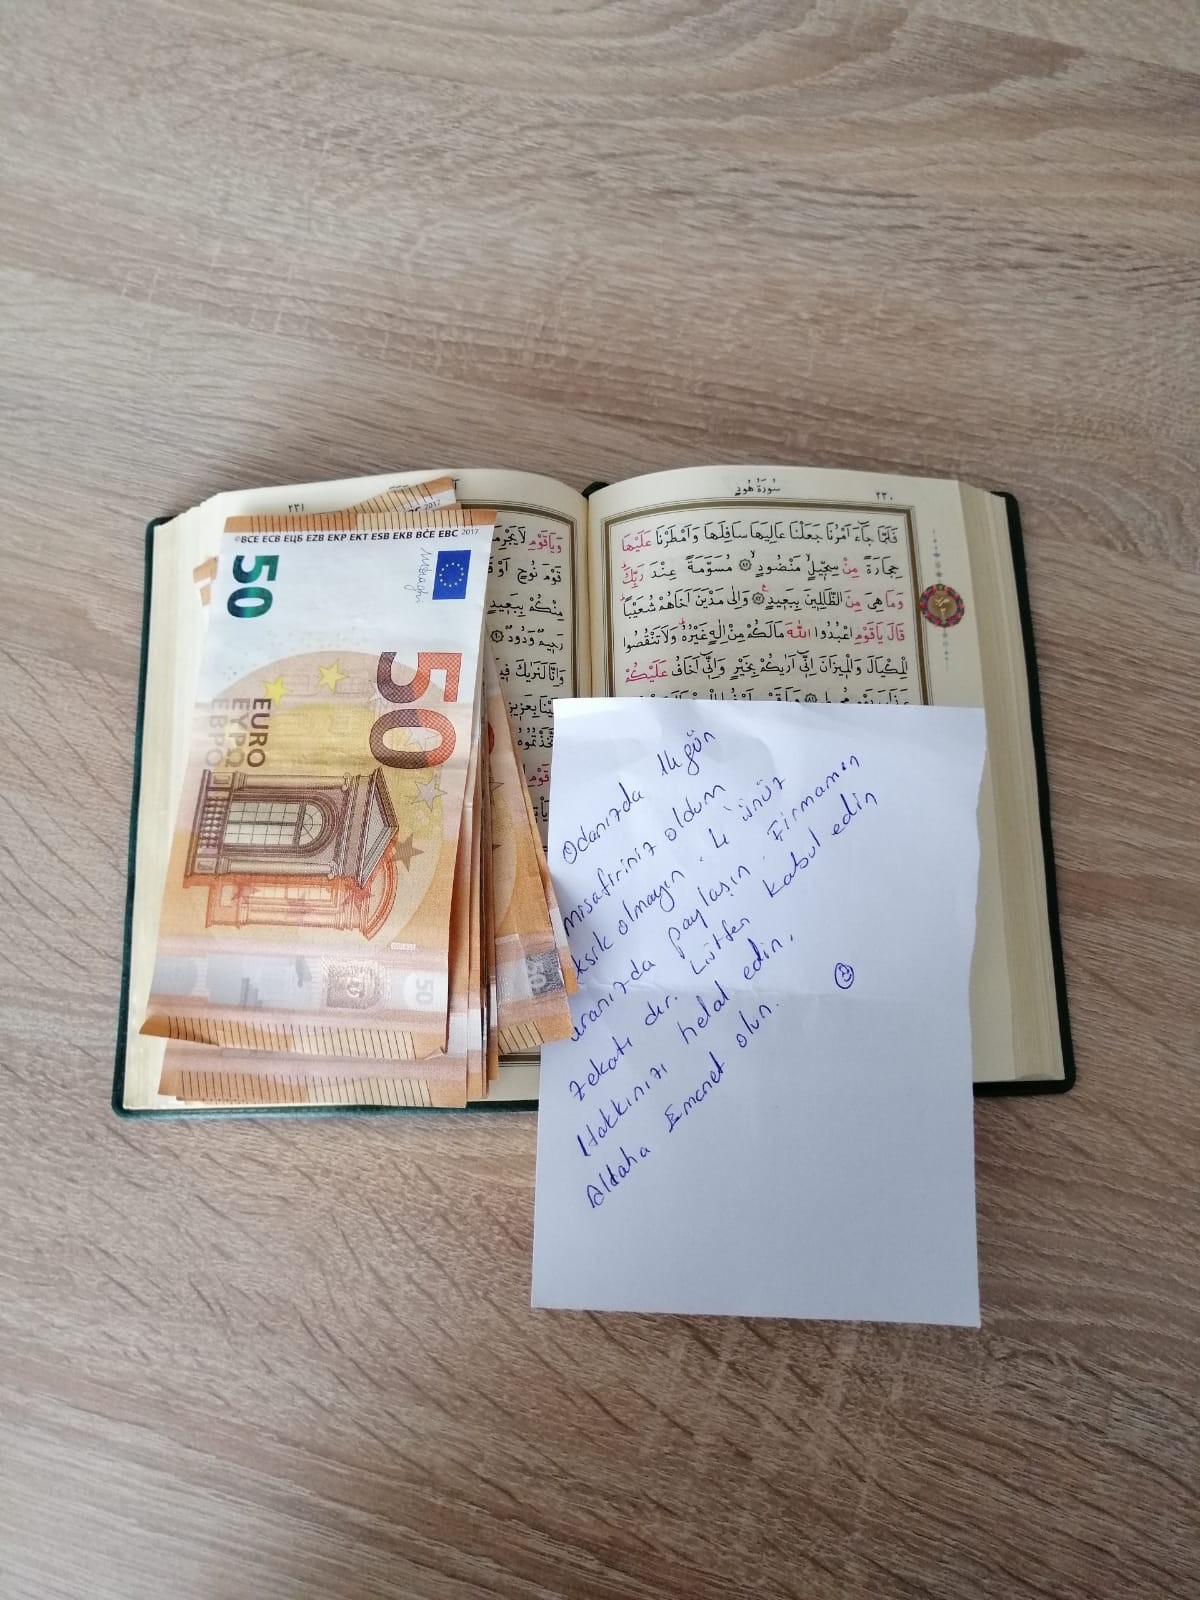 ٢٣١
2017
©BCE ECB ЕЦБ EZB EKP EKT ESB EKB BĊE EBC 2017
50
50
EURO
ΕΥΡΩ
ЕВРО
50
50
وَيَاقَوْمِ لَايَجْرِمَ
قَوْمَ نُوحٍ اَوْ قَ
مِنْكُمْ بِبَعِيدٍ
رَحِيمٌ وَدُودٌ
وَاِنَّا لَنَرٰيكَ ف۪ي
سُورَةُ هُودٍ
٢٣٠
فَلَمَّا جَٓاءَ اَمْرُنَا جَعَلْنَا عَالِيَهَا سَافِلَهَا وَاَمْطَرْنَا عَلَيْهَا
حِجَارَةً مِنْ سِجّ۪يلٍ مَنْضُودٍ ﴿٨٢﴾ مُسَوَّمَةً عِنْدَ رَبِّكَ
وَمَا هِيَ مِنَ الظَّالِم۪ينَ بِبَع۪يدٍ ﴿٨٣﴾ وَاِلٰى مَدْيَنَ اَخَاهُمْ شُعَيْبًا
قَالَ يَاقَوْمِ اعْبُدُوا اللّٰهَ مَالَكُمْ مِنْ اِلٰهٍ غَيْرُهُ وَلَا تَنْقُصُوا
الْمِكْيَالَ وَالْم۪يزَانَ اِنّ۪ٓي اَرٰيكُمْ بِخَيْرٍ وَاِنّ۪ٓي اَخَافُ عَلَيْكُمْ
Odanızda 14 gün
misafiriniz oldum
Eksik olmayın 4 ünüz
aranızda paylaşın Firmamın
zekatı dır. Lütfen kabul edin
Hakkınızı helal edin.
Aldaha Emanet olun.